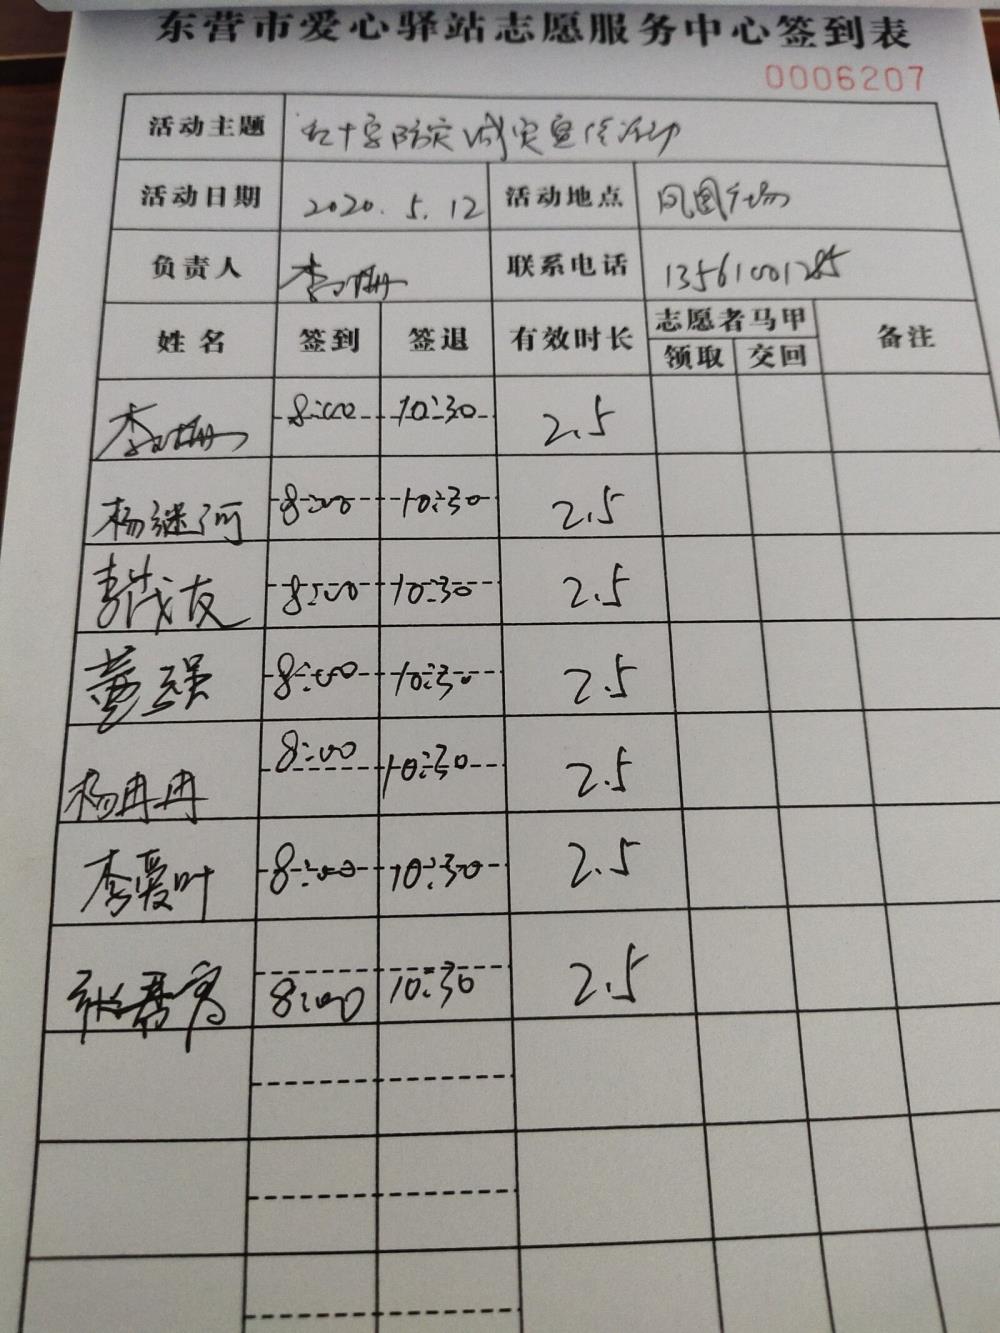 东营市爱心驿站志愿服务中心签到表
0006207
活动主题 红十字防灾减灾宣传活动
活动日期 2020.5.12 活动地点 凤凰广场
负责人 李 联系电话 13561001285
姓名 签到 签退 有效时长 志愿者马甲 备注
领取 交回
李 8:00 10:30 2.5
杨继河 8:00 10:30 2.5
友 8:00 10:30 2.5
董强 8:00 10:30 2.5
杨冉冉 8:00 10:30 2.5
李爱叶 8:00 10:30 2.5
张 8:00 10:30 2.5